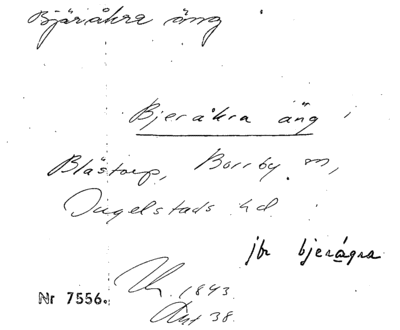 Bjäråkra äng
Bjeråkra äng i
Blåstorp, Borrby sn,
Ingelstads hd.
jfr bjerågra
1843.
Akt 38.
Nr 7556.